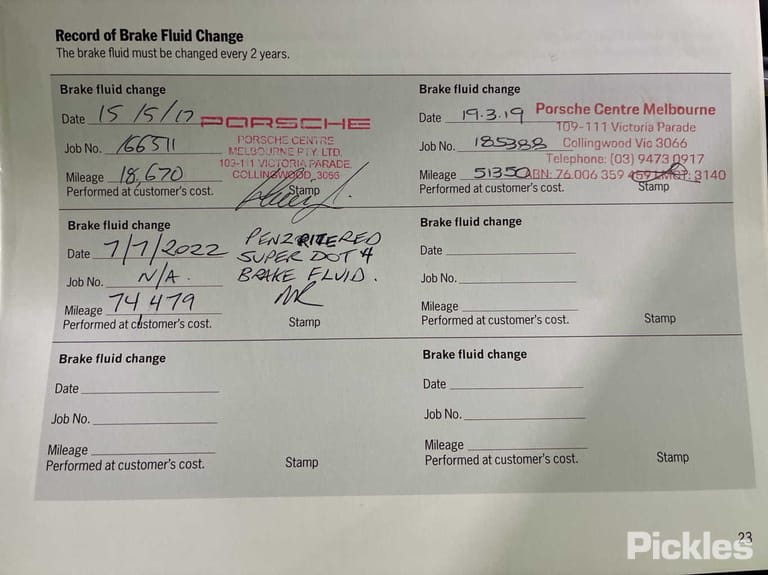 Record of Brake Fluid Change
The brake fluid must be changed every 2 years.
Brake fluid change
Date 15/5/17
Job No. 166511
Mileage 18,670
Performed at customer's cost.
Stamp
PORSCHE
PORSCHE CENTRE
MELBOURNE PTY. LTD.
109-111 VICTORIA PARADE
COLLINGWOOD 3066
Brake fluid change
Date 19.3.19
Job No. 185388
Mileage 51350
Performed at customer's cost.
Stamp
Porsche Centre Melbourne
109-111 Victoria Parade
Collingwood Vic 3066
Telephone: (03) 9473 0917
ABN: 76 006 359 459 LMCT: 3140
Brake fluid change
Date 7/7/2022
Job No. N/A.
Mileage 74,479
Performed at customer's cost.
Stamp
SUPER DOT 4
BRAKE FLUID.
Brake fluid change
Date
Job No.
Mileage
Performed at customer's cost.
Stamp
Brake fluid change
Date
Job No.
Mileage
Performed at customer's cost.
Stamp
Brake fluid change
Date
Job No.
Mileage
Performed at customer's cost.
Stamp
23
Pickles